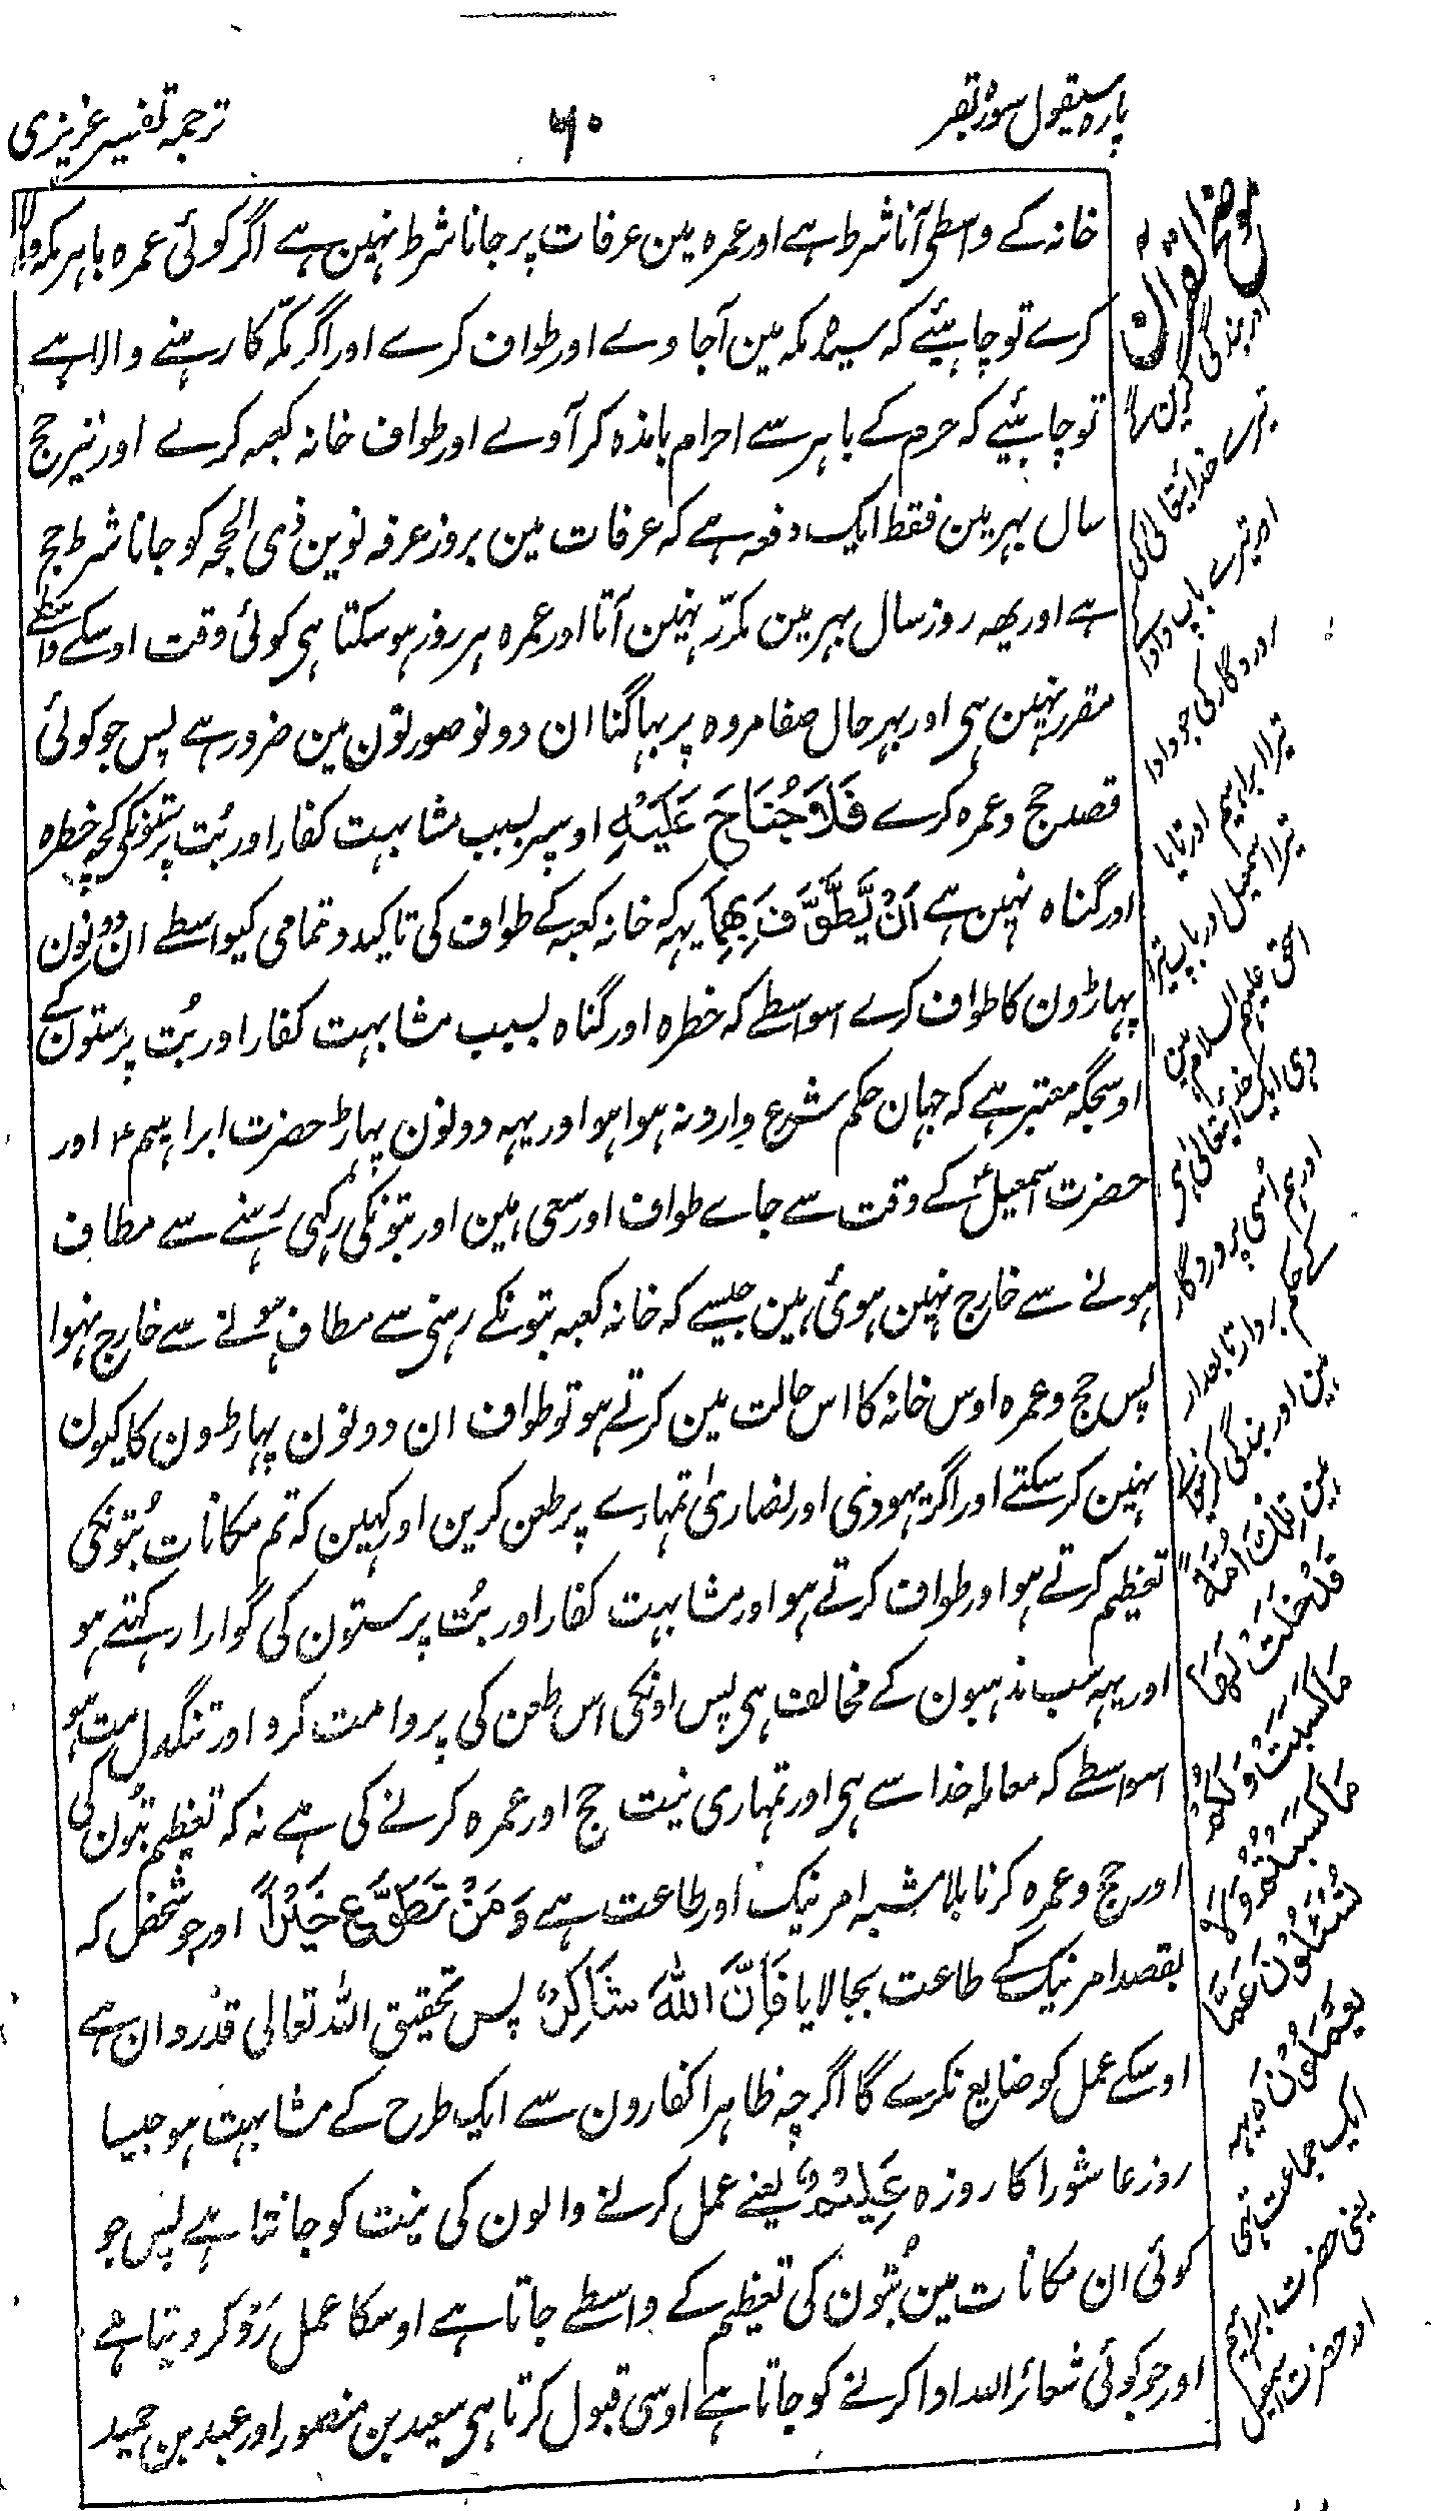 پارہ سیقول سورہ بقر
۶۰
ترجمہ تفسیر عزیزی
خانہ کے واسطی آنا شرط ہے اور عمرہ مین عرفات پر جانا شرط نہین ہے اگر کوئی عمرہ باہر مکہ والا
کرے تو چاہئیے کہ سیدہا مکہ مین آجاوے اور طواف کرے اور اگر مکّہ کا رہنے والا ہے
تو چاہئیے کہ حرم کے باہر سے احرام باندہ کر آوے اور طواف خانہ کعبہ کرے اور نیز حج
سال بہر مین فقط ایک دفعہ ہے کہ عرفات مین بروز عرفہ نوین ذی الحجہ کو جانا شرط حج
ہے اور یہہ روز سال بہر مین مکرّر نہین آتا اور عمرہ ہر روز ہوسکتا ہی کوئی وقت اوسکے واسطے
مقرر نہین ہی اور بہر حال صفا مروہ پر بہاگنا ان دونو صورتون مین ضرور ہے پس جو کوئی
قصد حج و عمرہ کرے فَلَا جُنَاحَ عَلَیْهِ اوسپر بسبب مشابہت کفار اور بُت پرستونکی کچہ خطرہ
اور گناہ نہین ہے اَنْ یَّطَّوَّفَ بِهِمَا یہہ کہ خانہ کعبہ کے طواف کی تاکید و تمامی کیواسطے ان دونون
پہاڑون کا طواف کرے اسواسطے کہ خطرہ اور گناہ بسبب مشابہت کفار اور بُت پرستون کے
اوسجگہ معتبر ہے کہ جہان حکم شرع وارد نہ ہوا ہو اور یہہ دونون پہاڑ حضرت ابراہیم ۴ اور
حضرت اسمعیلؑ کے وقت سے جاے طواف اور سعی ہین اور بتونکی رکہی رہنے سے مطاف
ہونے سے خارج نہین ہوئی ہین جیسے کہ خانہ کعبہ بتونکے رہنی سے مطاف ہونے سے خارج نہوا
پس حج و عمرہ اوس خانہ کا اس حالت مین کرتے ہو تو طواف ان دونون پہاڑون کا کیون
نہین کرسکتے اور اگر یہودی اور نصاریٰ تمہارے پر طعن کرین اور کہین کہ تم مکانات بُتونکی
تعظیم کرتے ہو اور طواف کرتے ہو اور مشابہت کفار اور بُت پرستون کی گوارا رکہتے ہو
اور یہہ سب مذہبون کے مخالف ہی پس اونکی اس طعن کی پروا مت کرو اور تنگدل مت ہو
اسواسطے کہ معاملہ خدا سے ہی اور تمہاری نیت حج اور عمرہ کرنے کی ہے نہ کہ تعظیم بتون کی
اور حج و عمرہ کرنا بلاشبہ امر نیک اور طاعت ہے وَمَنْ تَطَوَّعَ خَیْرًا اور جو شخص کہ
بقصد امر نیک کے طاعت بجا لایا فَاِنَّ اللّٰهَ شَاکِرٌ پس تحقیق اللہ تعالی قدردان ہے
اوسکے عمل کو ضایع نکرے گا اگرچہ ظاہرا کفارون سے ایک طرح کے مشابہت ہو جیسا
روز عاشورا کا روزہ عَلِیْمٌ یعنے عمل کرنے والون کی نیت کو جانتا ہے پس جو
کوئی ان مکانات مین بُتون کی تعظیم کے واسطے جاتا ہے اوسکا عمل رَدّ کردیتا ہے
اور جو کوئی شعائر اللہ ادا کرنے کو جاتا ہے اوسی قبول کرتا ہی سعید بن منصور اور عبد بن حمید
موضح القرآن
اور بندگی کرین گے
تیرے خدایتعالی کی
اور تیرے باپ دادا کے
پروردگار کی جو دادا
تیرا ابراہیم اور تایا
تیرا اسمعیل اور باپ تیرا
اسحق علیہم السلام ہین
وہی ایک خدایتعالی ہی
اور ہم اُسی پروردگار
کے حکم بردار تابعدار
ہین اور بندگی کرنیوالے
ہین تِلْكَ اُمَّةٌ
قَدْ خَلَتْ لَهَا
مَا کَسَبَتْ وَلَکُمْ
مَا کَسَبْتُمْ وَلَا
تُسْئَلُوْنَ عَمَّا
یَعْمَلُوْنَ ہ یہہ
ایک جماعت تہی
یعنی حضرت ابراہیم
اور حضرت اسمعیل